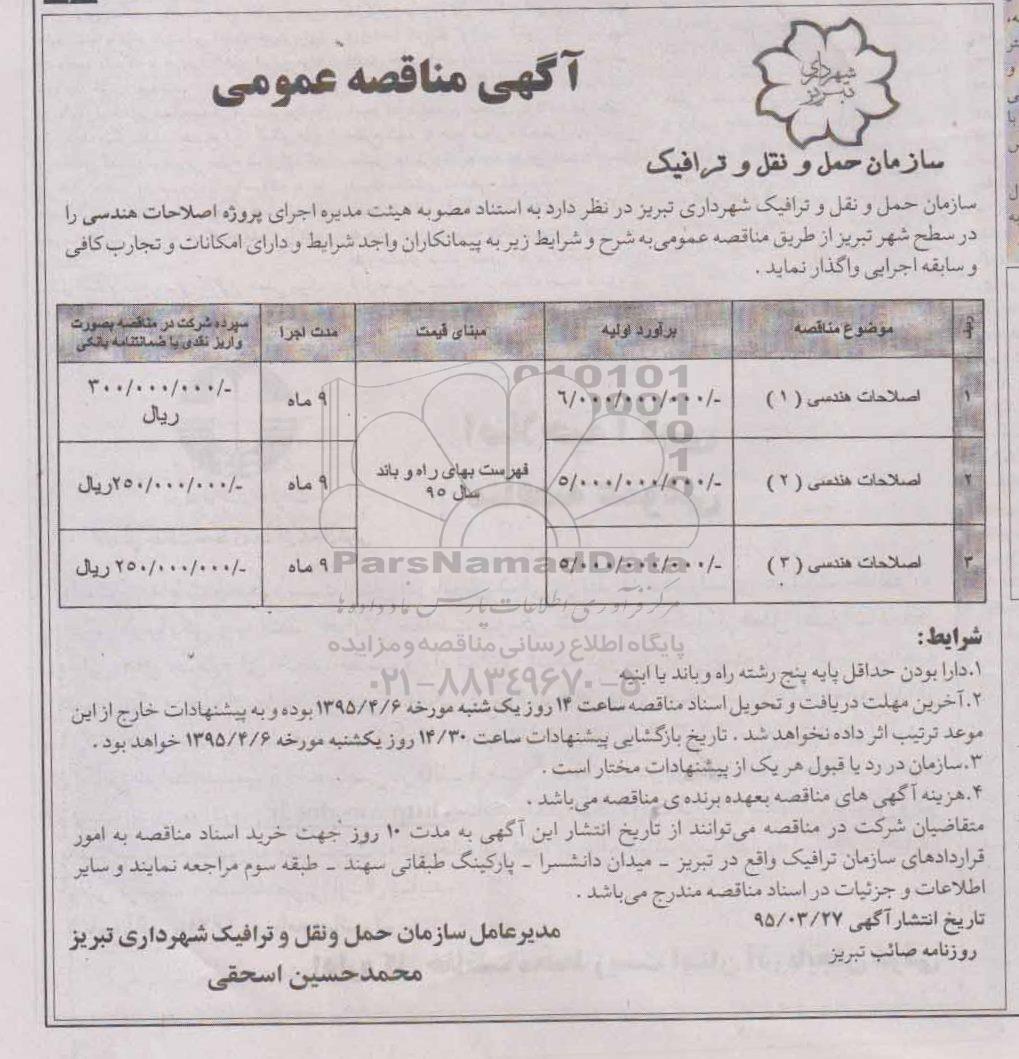 شهرداری
تبریز
آگهی مناقصه عمومی
سازمان حمل و نقل و ترافیک
سازمان حمل و نقل و ترافیک شهرداری تبریز در نظر دارد به استناد مصوبه هیئت مدیره اجرای پروژه اصلاحات هندسی را
در سطح شهر تبریز از طریق مناقصه عمومی به شرح و شرایط زیر به پیمانکاران واجد شرایط و دارای امکانات و تجارب کافی
و سابقه اجرایی واگذار نماید .
موضوع مناقصه برآورد اولیه مبنای قیمت مدت اجرا سپرده شرکت در مناقصه بصورت واریز نقدی یا ضمانتنامه بانکی
۱ اصلاحات هندسی ( ۱ ) ۶/۰۰۰/۰۰۰/۰۰۰/- ۹ ماه ۳۰۰/۰۰۰/۰۰۰/- ریال
۲ اصلاحات هندسی ( ۲ ) ۵/۰۰۰/۰۰۰/۰۰۰/- فهرست بهای راه و باند سال ۹۵ ۹ ماه ۲۵۰/۰۰۰/۰۰۰/- ریال
۳ اصلاحات هندسی ( ۳ ) ۵/۰۰۰/۰۰۰/۰۰۰/- ۹ ماه ۲۵۰/۰۰۰/۰۰۰/- ریال
ParsNamadData
مرکز فرآوری اطلاعات پارس نماد داده ها
پایگاه اطلاع رسانی مناقصه و مزایده
۰۲۱-۸۸۳۴۹۶۷۰-۵
شرایط:
۱.دارا بودن حداقل پایه پنج رشته راه و باند یا ابنیه
۲.آخرین مهلت دریافت و تحویل اسناد مناقصه ساعت ۱۴ روز یک شنبه مورخه ۱۳۹۵/۴/۶ بوده و به پیشنهادات خارج از این
موعد ترتیب اثر داده نخواهد شد . تاریخ بازگشایی پیشنهادات ساعت ۱۴/۳۰ روز یکشنبه مورخه ۱۳۹۵/۴/۶ خواهد بود .
۳.سازمان در رد یا قبول هر یک از پیشنهادات مختار است .
۴.هزینه آگهی های مناقصه بعهده برنده ی مناقصه می‌باشد .
متقاضیان شرکت در مناقصه می‌توانند از تاریخ انتشار این آگهی به مدت ۱۰ روز جهت خرید اسناد مناقصه به امور
قراردادهای سازمان ترافیک واقع در تبریز – میدان دانشسرا – پارکینگ طبقاتی سهند – طبقه سوم مراجعه نمایند و سایر
اطلاعات و جزئیات در اسناد مناقصه مندرج می‌باشد .
تاریخ انتشار آگهی ۹۵/۰۳/۲۷
روزنامه صائب تبریز
مدیرعامل سازمان حمل ونقل و ترافیک شهرداری تبریز
محمدحسین اسحقی